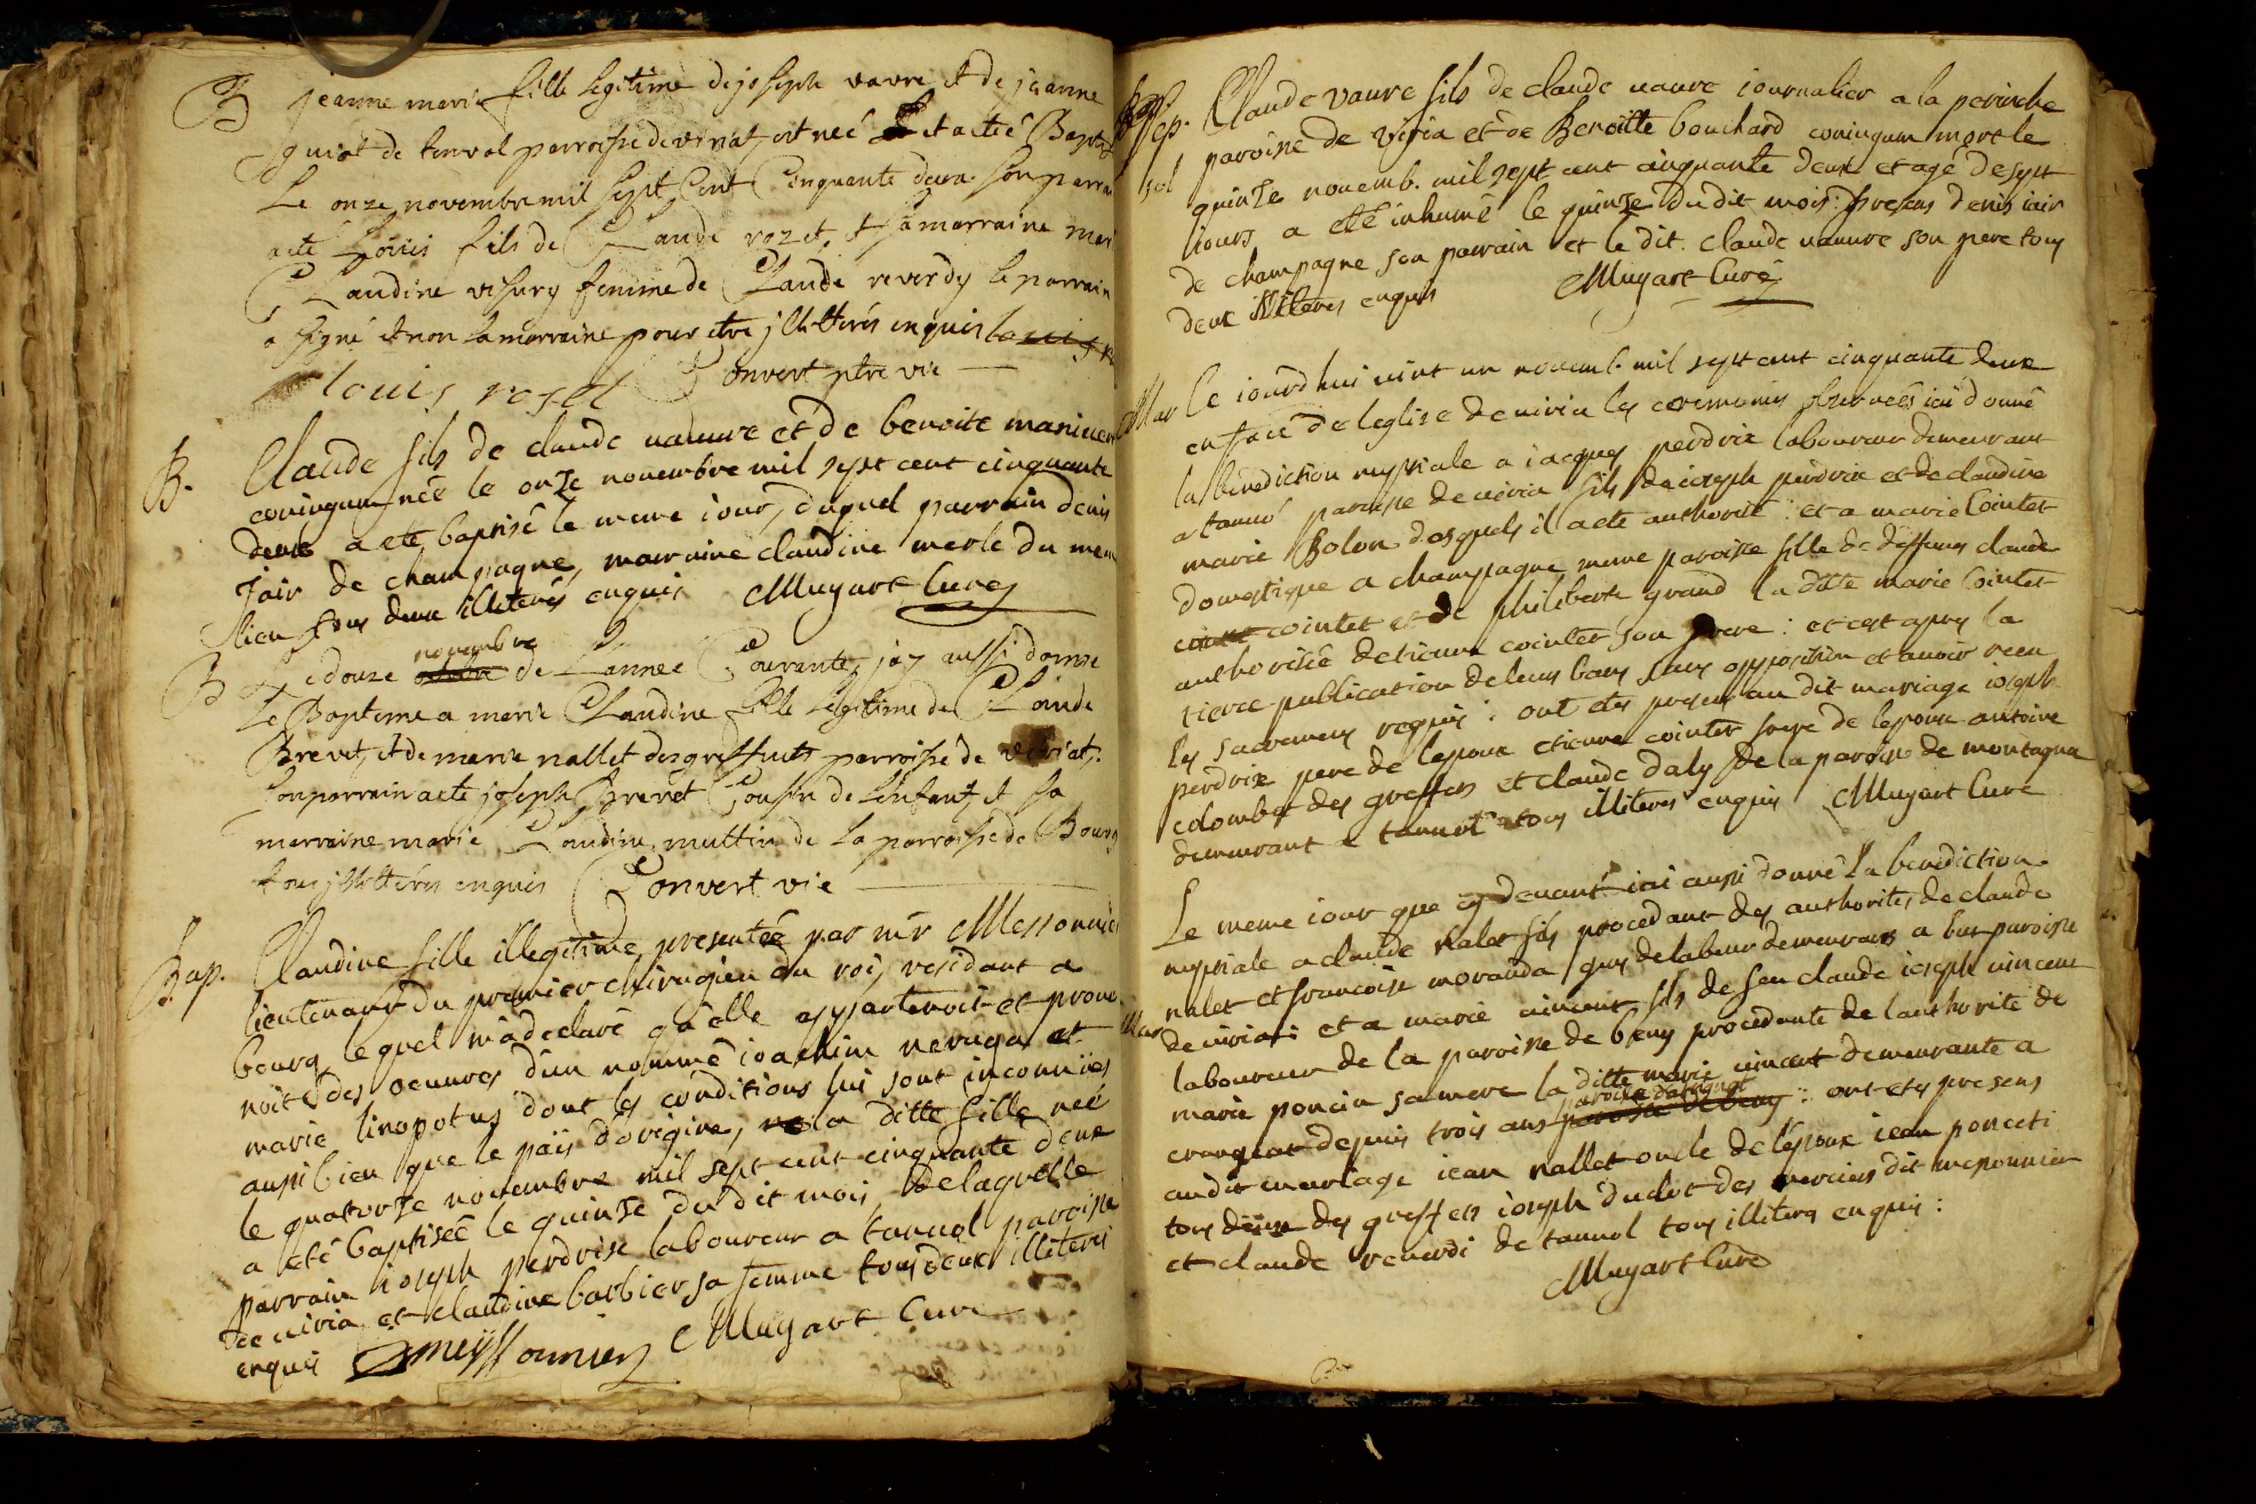 B jeanne marie fille legitime de joseph vavre et de jeanne
guiot de tanvol parroisse de virriat, est neé et a etté Baptisé
Le onze novembre mil sept Cent Cinquante deux. son parrai
a eté Louis fils de Claude rozet, et sa marraine mari
Claudine visury femme de Claude reverdy le parrain
a signé et non la marraine pour etre jllitterés enquis
louis roset Convert ptre vic
B. Claude fils de claude vauvre et de benoite
couingum née le onze novembre mil sept cent cinquante
deux a eté baptisé le meme iour, duquel parrain denis
Jair de champagne, marraine claudine merle du mem
lieu tous deux illiterés enquis Mugart Curé
B Le douze novembre de L'année Courante, j'ay aussi donné
Le Bapteme a marie Claudine fille Legitime de Claude
Brevet, et de marie nallet des greffets parroisse de virriat.
son parrain a eté joseph Brevet Cousin de L'enfant, et sa
marraine marie Claudine muttin de la parroisse de Bourg
tous jllitterés enquis Convert vic
Bap. Claudine fille illegitime presentée par mr Messonnier
lieutenant du premier chirugien du roi, residant a
bourg lequel m'a declaré qu'elle appartenoit et prove
noit des oeuvres d'un nommé ioachim veruga et
marie linopotus dont les conditions lui sont inconnües
aussi bien que le païs d'origine, la ditte fille neé
le quatorze novembre mil sept cent cinquante deux
a eté baptiseé le quinze du dit mois, de laquelle
parrain ioseph perdrix laboureur a tanvol paroisse
de viria et claudine barbier sa femme tous deux illiterés
enquis meyssonnier Mugart Curé
Sep. Claude vauvre fils de claude vauvre iournalier a la perinche
paroisse de viria et de Benoitte bouchard couingum mort le
quinze novemb. mil sept cent cinquante deux et agé de sept
iours a eté inhumé le quinze du dit mois: presens denis iair
de champagne son parrain et le dit claude vauvre son pere tous
deux illiterés enquis Mugart Curé
Mar Ce iourd'hui vint un novemb. mil sept cent cinquante deux
en face de l'eglise de viria les ceremonies observées i'ai donné
la benediction nuptiale a iacques perdrix laboureur demeurant
a tanvol paroisse de viria fils de ioseph perdrix et de claudine
marie Bolon desquels il a eté authorité: et a marie Cointet
domestique a champagne meme paroisse fille de deffunts claude
cointet et de philiberte grand la ditte marie Cointet
authorisée d'etienne cointet son frere: et c'est apres la
tierce publication de leurs bans sans opposition et avoir receu
les sacremens requis: ont etes presens au dit mariage ioseph
perdrix pere de l'epoux etienne cointet frere de l'epouse antoine
colombet des greffets et claude daly de la paroisse de montagna
demeurant a tanvol tous illiterés enquis Mugart Curé
Mar Le meme iour que cy devant i'ai aussi donné la benediction
nuptiale a claude nalet fils procedant des authorités de claude
nalet et francoise moranda gens de labeur demeurans a but paroisse
de viriat et a marie vincent fille de feu claude ioseph vincent
laboureur de la paroisse de beny procedante de l'authorité de
marie poncin sa mere la ditte marie vincent demeurante a
crangeat depuis trois ans paroisse d'attignat: ont etes presens
au dit mariage iean nallet oncle de l'époux iean poncet
tous deux des greffets ioseph duclot des merciers dit meponnier
et claude reverdi de tanvol tous illiterés enquis:
Mugart Curé